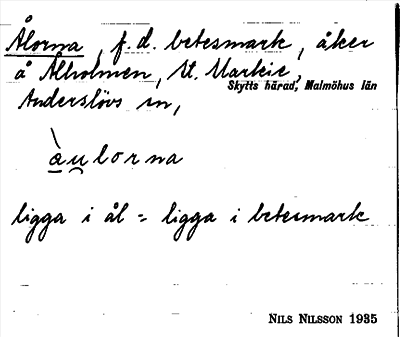 Ålorna, f.d. betesmark, åker
å Ålholmen, St. Markie,
Skytts härad, Malmöhus län
Anderslövs sn,
àu̯lorna
ligga i ål = ligga i betesmark
NILS NILSSON 1935